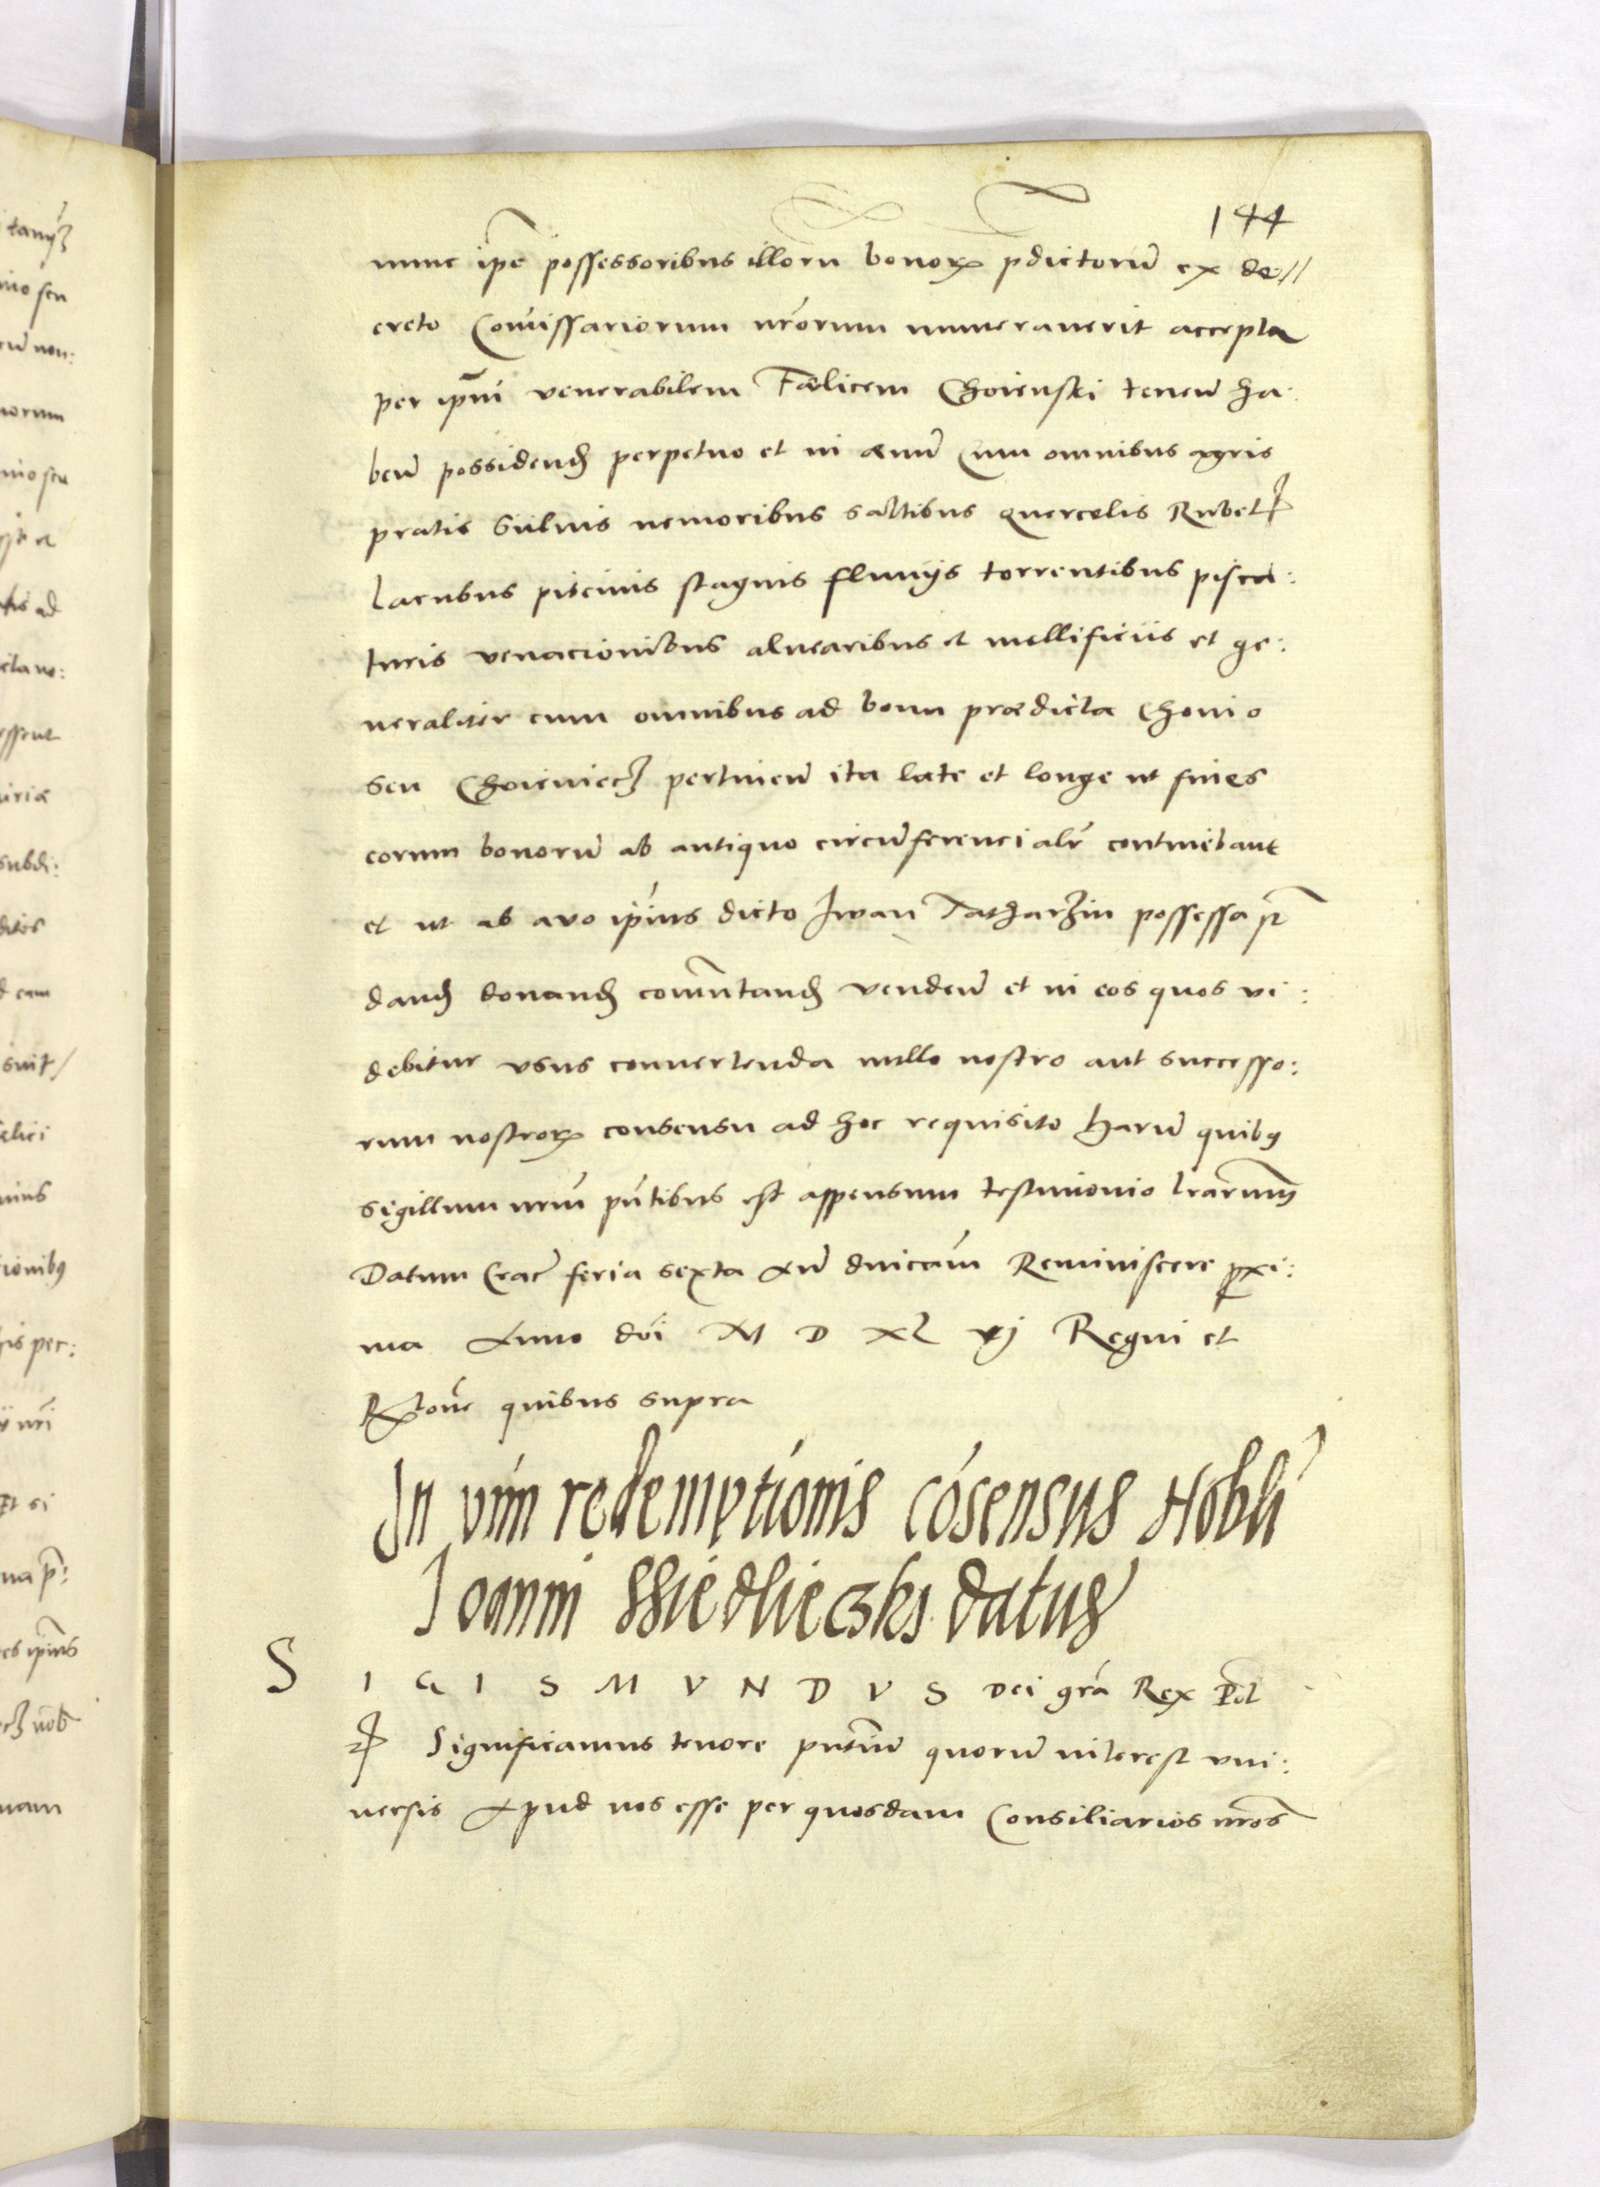 144
nunc ipē possessoribus illoru bonoꝝ pdictorū ex de//
creto Comissariorum nr̄orum numeraverit accepta
per ipm̄ venerabilem Fælicem Choienski tenen̄ ha:
ben̄ possidend perpetuo et in ævū cum omnibus agris
pratis siluis nemoribus saltibus quercetis Rubet
lacubus piscinis stagnis fluuijs torrentibus pisca:
turis venacionibus aluearibus et mellificiis et ge:
neraliter cum omnibus ad bona prædicta Choino
seu Choieniecz pertinen̄ ita late et longe ut fines
eorum bonorū ab antiquo circūferencialr̄ continebant
et ut ab avo ipīus dicto Iwan Tatharzin possessa st̄
dand donand comūtand venden̄ et in eos quos vi:
debitur vsus convertenda nullo nostro aut successo:
rum nostroꝝ consensu ad hoc requisito Harū quibꝯ
sigillum nrm̄ pn̄tibus est appensum testimonio lrarum
Datum Crac̄ feria sexta an̄ dnicam̄ Reminiscere ꝓxi:
ma Anno dn̄i M D XL vj Regni et
quibus supra
In vim redemptionis cōsensus Nobli
Ioanni Ssiedlieczki datus
S I G I S M V N D V S Dei grā Rex Pol
Significamus tenore pn̄tium quorū interest vni:
versis Apud nos esse per quosdam Consiliarios nr̄os